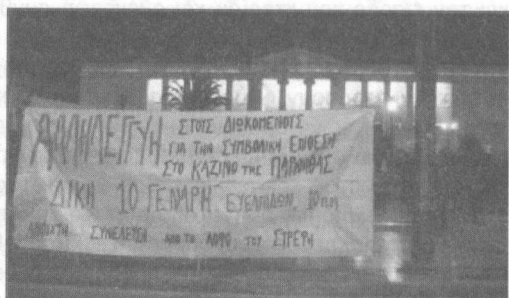 ΑΛΛΗΛΕΓΓΥΗ ΣΤΟΥΣ ΔΙΩΚΟΜΕΝΟΥΣ
ΓΙΑ ΤΗΝ ΣΥΜΒΟΛΙΚΗ ΕΠΙΘΕΣΗ
ΣΤΟ ΚΑΖΙΝΟ ΤΗΣ ΠΑΡΝΗΘΑΣ
ΔΙΚΗ 10 ΓΕΝΑΡΗ ΕΥΕΛΠΙΔΩΝ, 10π.μ
ΑΝΟΙΧΤΗ ΣΥΝΕΛΕΥΣΗ ΑΠΟ ΤΟ ΛΟΦΟ ΤΟΥ ΣΤΡΕΦΗ